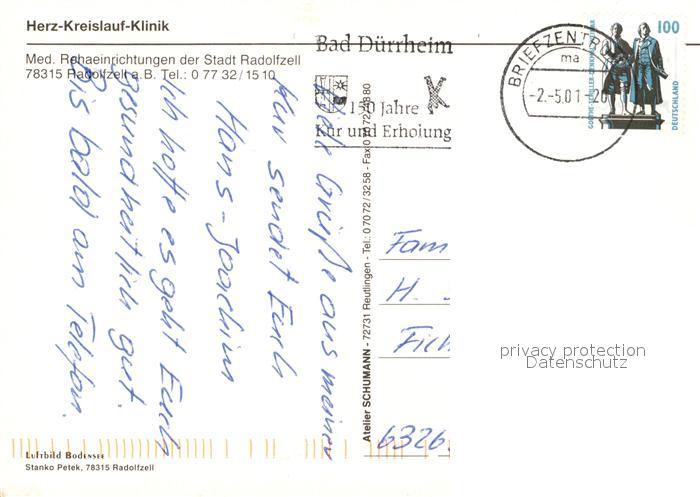 Herz-Kreislauf-Klinik
Med. Rehaeinrichtungen der Stadt Radolfzell
78315 Radolfzell a.B. Tel.: 0 77 32/15 10
Bad Dürrheim
150 Jahre
Kur und Erholung
BRIEFZENTRUM
ma
-2.-5.01-20
100
GOETHE-SCHILLER-DENKMAL
DEUTSCHLAND
Viele Grüße aus meiner
Kur sendet Euch
Hans-Joachim
Ich hoffe es geht Euch
gesundheitlich gut.
Bis bald am Telefon.
Atelier SCHUMANN - 72731 Reutlingen - Tel.: 07072/3258 - Fax
Fam
H.
Fich
6326
privacy protection
Datenschutz
Luftbild Bodensee
Stanko Petek, 78315 Radolfzell